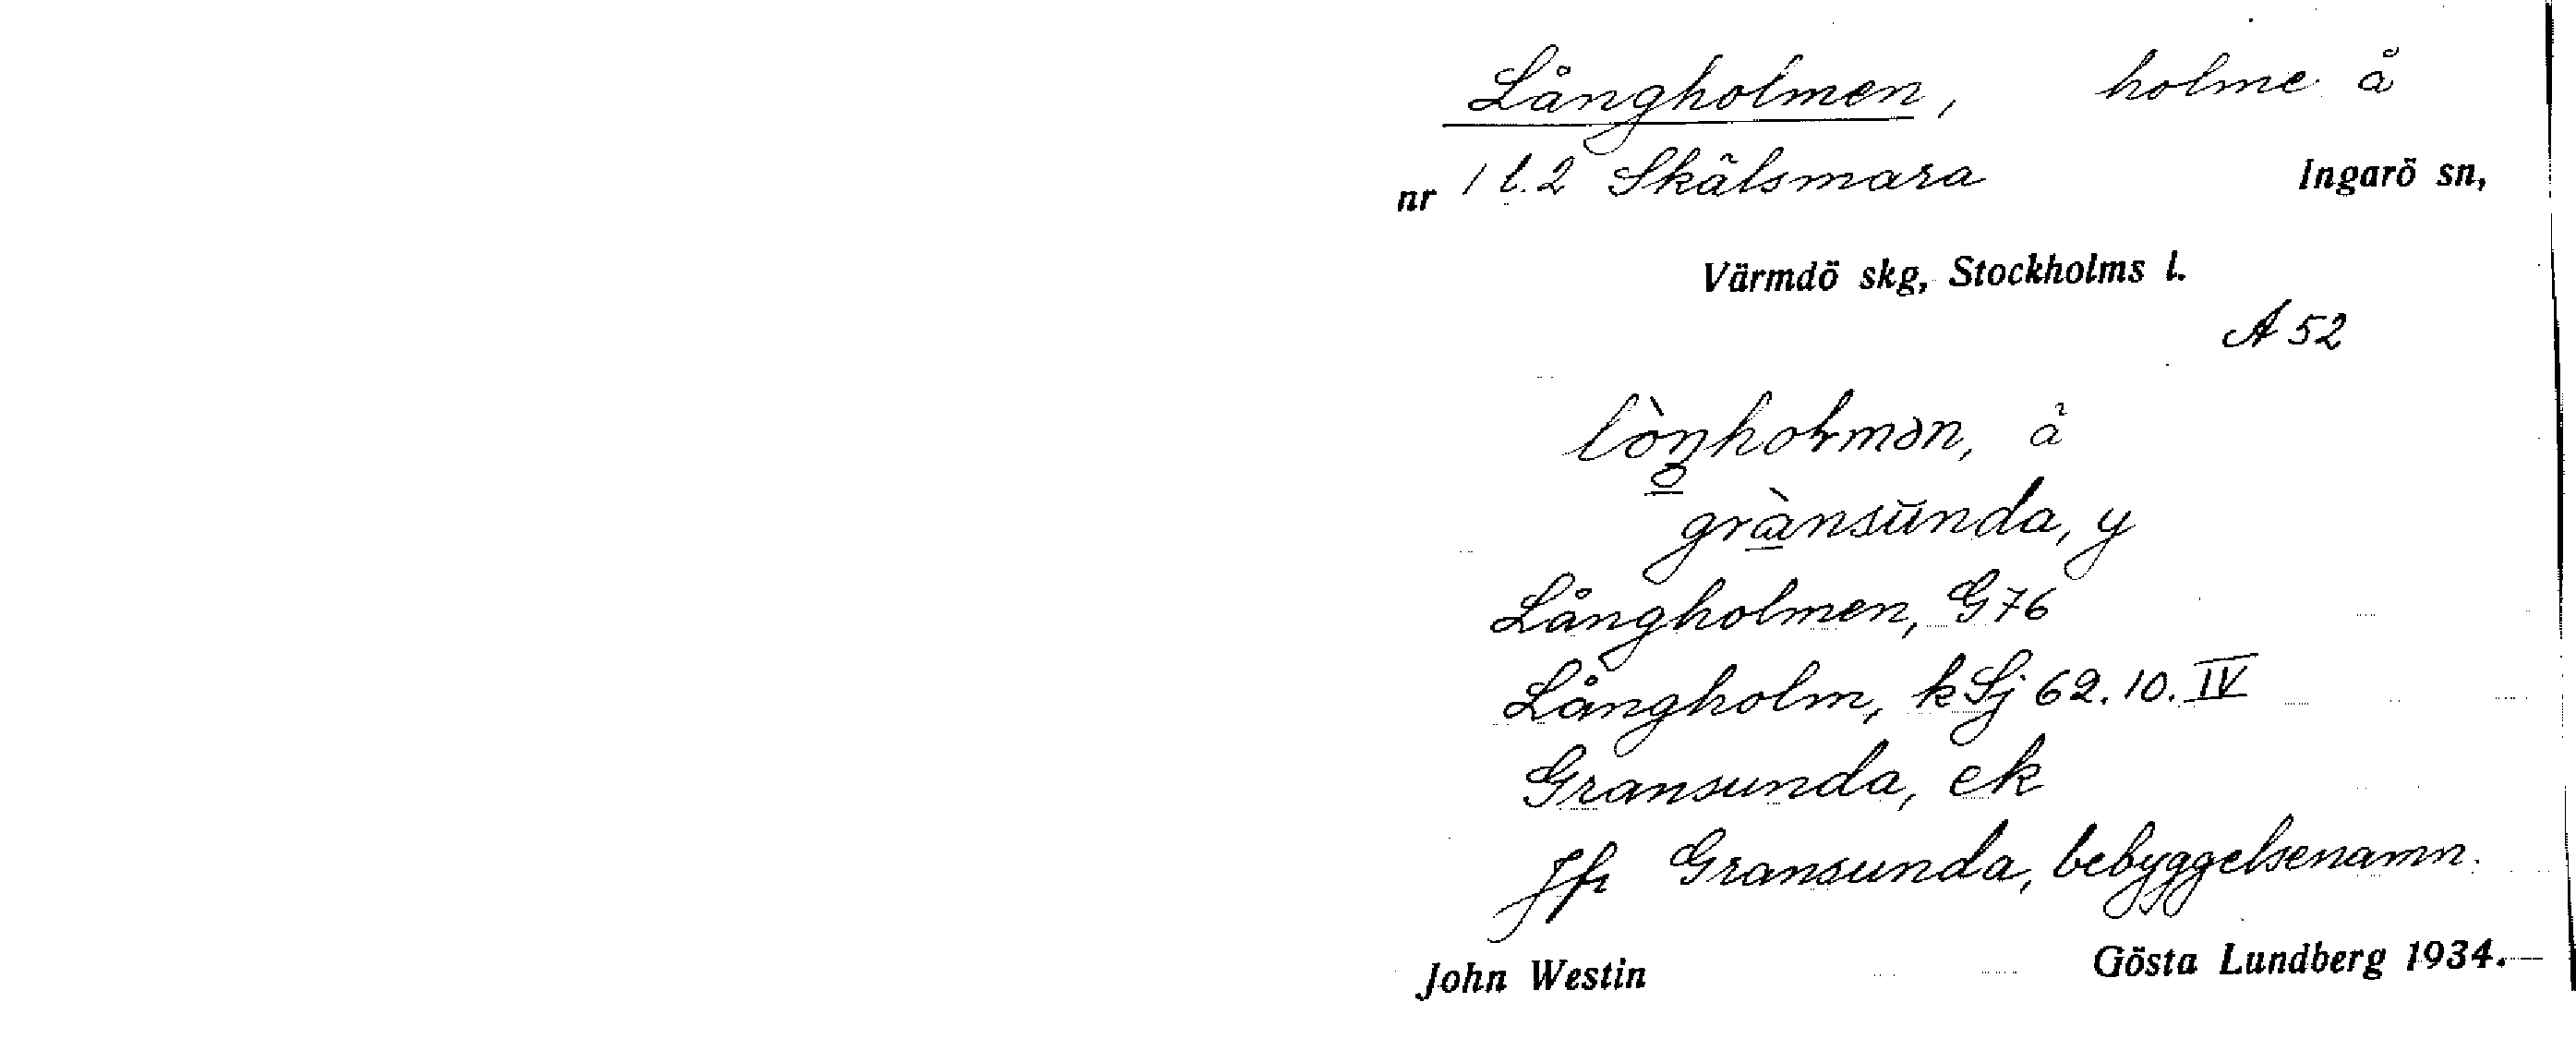 Långholmen, holme å
nr 1 l. 2 Skälsmara Ingarö sn,
Värmdö skg, Stockholms l.
A 52
lòŋholmən, å
grànsŭnda, y
Långholmen, G 76
Långholm, kSj 62.10.IV
Gransunda, ek
Jfr Gransunda, bebyggelsenamn.
John Westin Gösta Lundberg 1934.